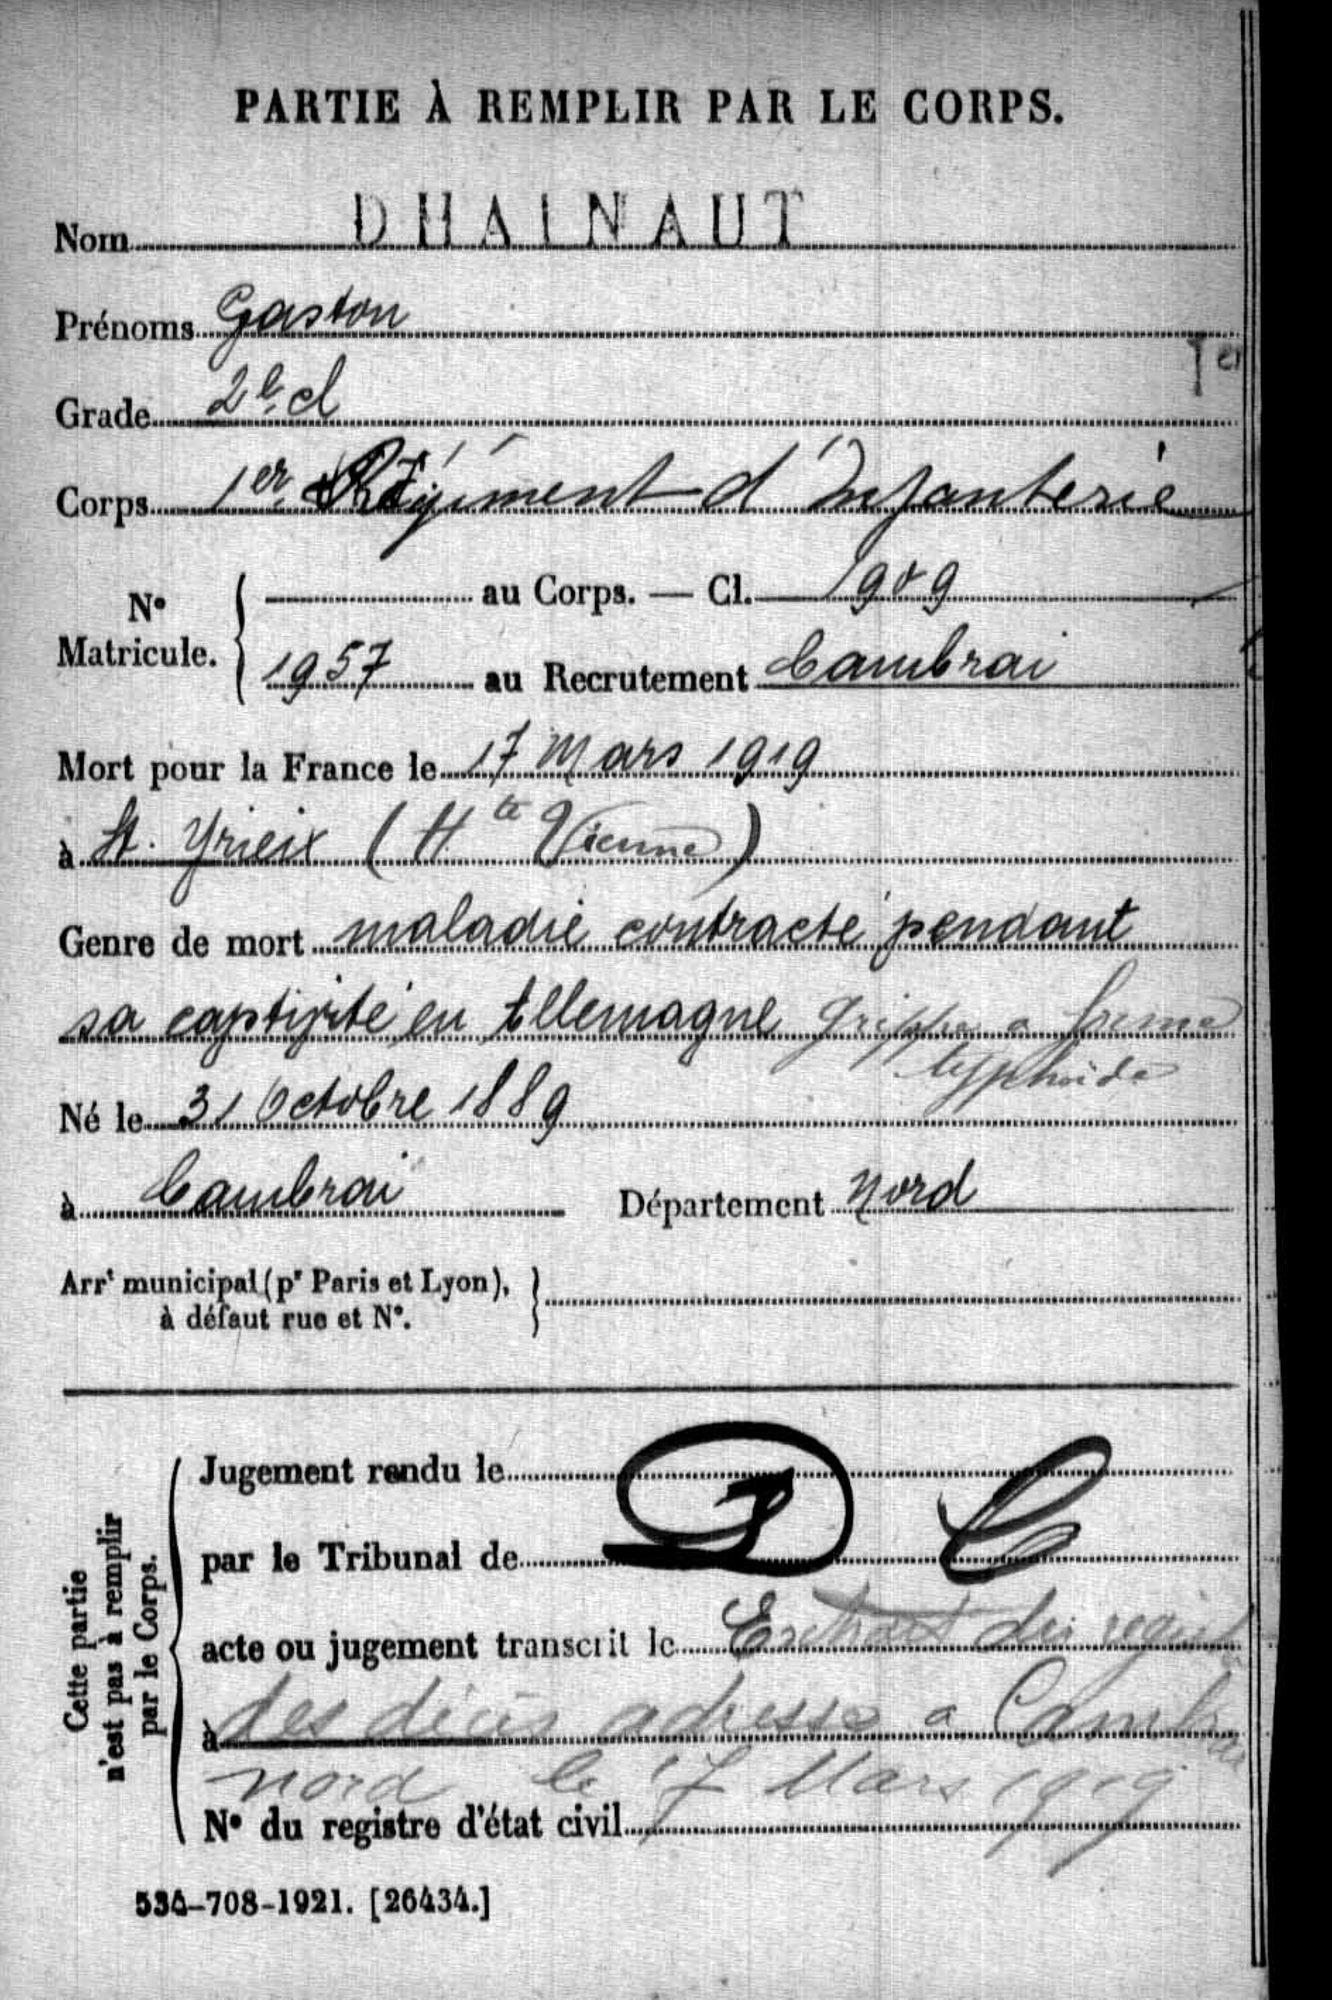 PARTIE À REMPLIR PAR LE CORPS.
Nom DHAINAUT
Prénoms Gaston
Grade 2e cl
Corps 1er Régiment d'Infanterie
N° Matricule. { au Corps. — Cl. 1909
1957 au Recrutement Cambrai
Mort pour la France le 17 Mars 1919
à St. Yrieix (Hte Vienne)
Genre de mort maladie contracté pendant
sa captivité en Allemagne grippe a forme
typhoïde
Né le 31 Octobre 1889
à Cambrai Département Nord
Arrt municipal (pr Paris et Lyon),
à défaut rue et N°. }
Cette partie
n'est pas à remplir
par le Corps.
Jugement rendu le
par le Tribunal de
acte ou jugement transcrit le Extrait des
à des décès adresse a
nord le 17 Mars 1919
N° du registre d'état civil
534-708-1921. [26434.]